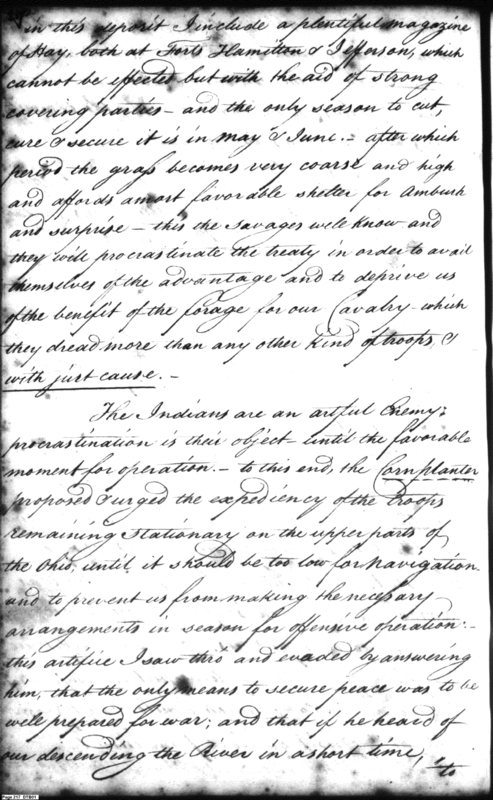 in this deposit I include a plentiful magazine
of Hay, both at Forts Hamilton & Jefferson, which
cannot be effected but with the aid of strong
covering parties – and the only season to cut,
cure & secure it is in May & June. – after which
period the grass becomes very coarse and high
and affords a most favorable shelter for Ambush
and surprise – this the savages well know and
they will procrastinate the treaty in order to avail
themselves of the advantage and to deprive us
of the benefit of the forage for our Cavalry – which
they dread more than any other kind of troops &
with just cause. –
The Indians are an artful Enemy;
procrastination is their object until the favorable
moment for operation. – to this end, the Cornplanter
proposed & urged the expediency of the troops
remaining stationary on the upper parts of
the Ohio, until it should be too low for Navigation
and to prevent us from making the necessary
arrangements in season for offensive operation: –
this artifice I saw thro' and evaded by answering
him, that the only means to secure peace was to be
well prepared for war; and that if he heard of
our descending the River in a short time,
to